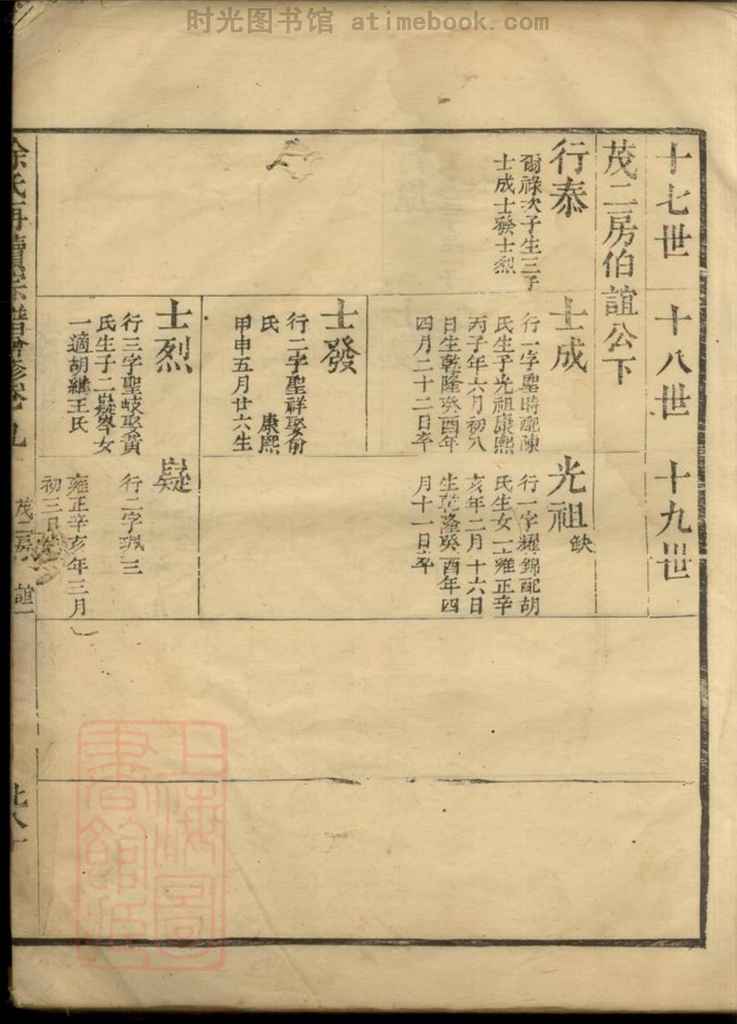 时光图书馆 atimebook.com
十七世 十八世 十九世
茂二房伯誼公下
行泰
爾祿次子生三子
士成士發士烈
士成
行一字聖時配陳
氏生子光祖康熙
丙子年六月初八
日生乾隆癸酉年
四月二十二日卒
光祖 缺
行一字耀錦配胡
氏生女一雍正辛
亥年二月十六日
生乾隆癸酉年四
月十一日卒
士發
行二字聖祥娶俞
氏 康熙
甲申五月廿六生
士烈
行三字聖岐娶黃
氏生子二嶷岑女
一適胡繼王氏
嶷
行二字 三
雍正辛亥年三月
初三日
徐氏再續宗譜 卷九
茂二房 誼一
上海圖書館藏